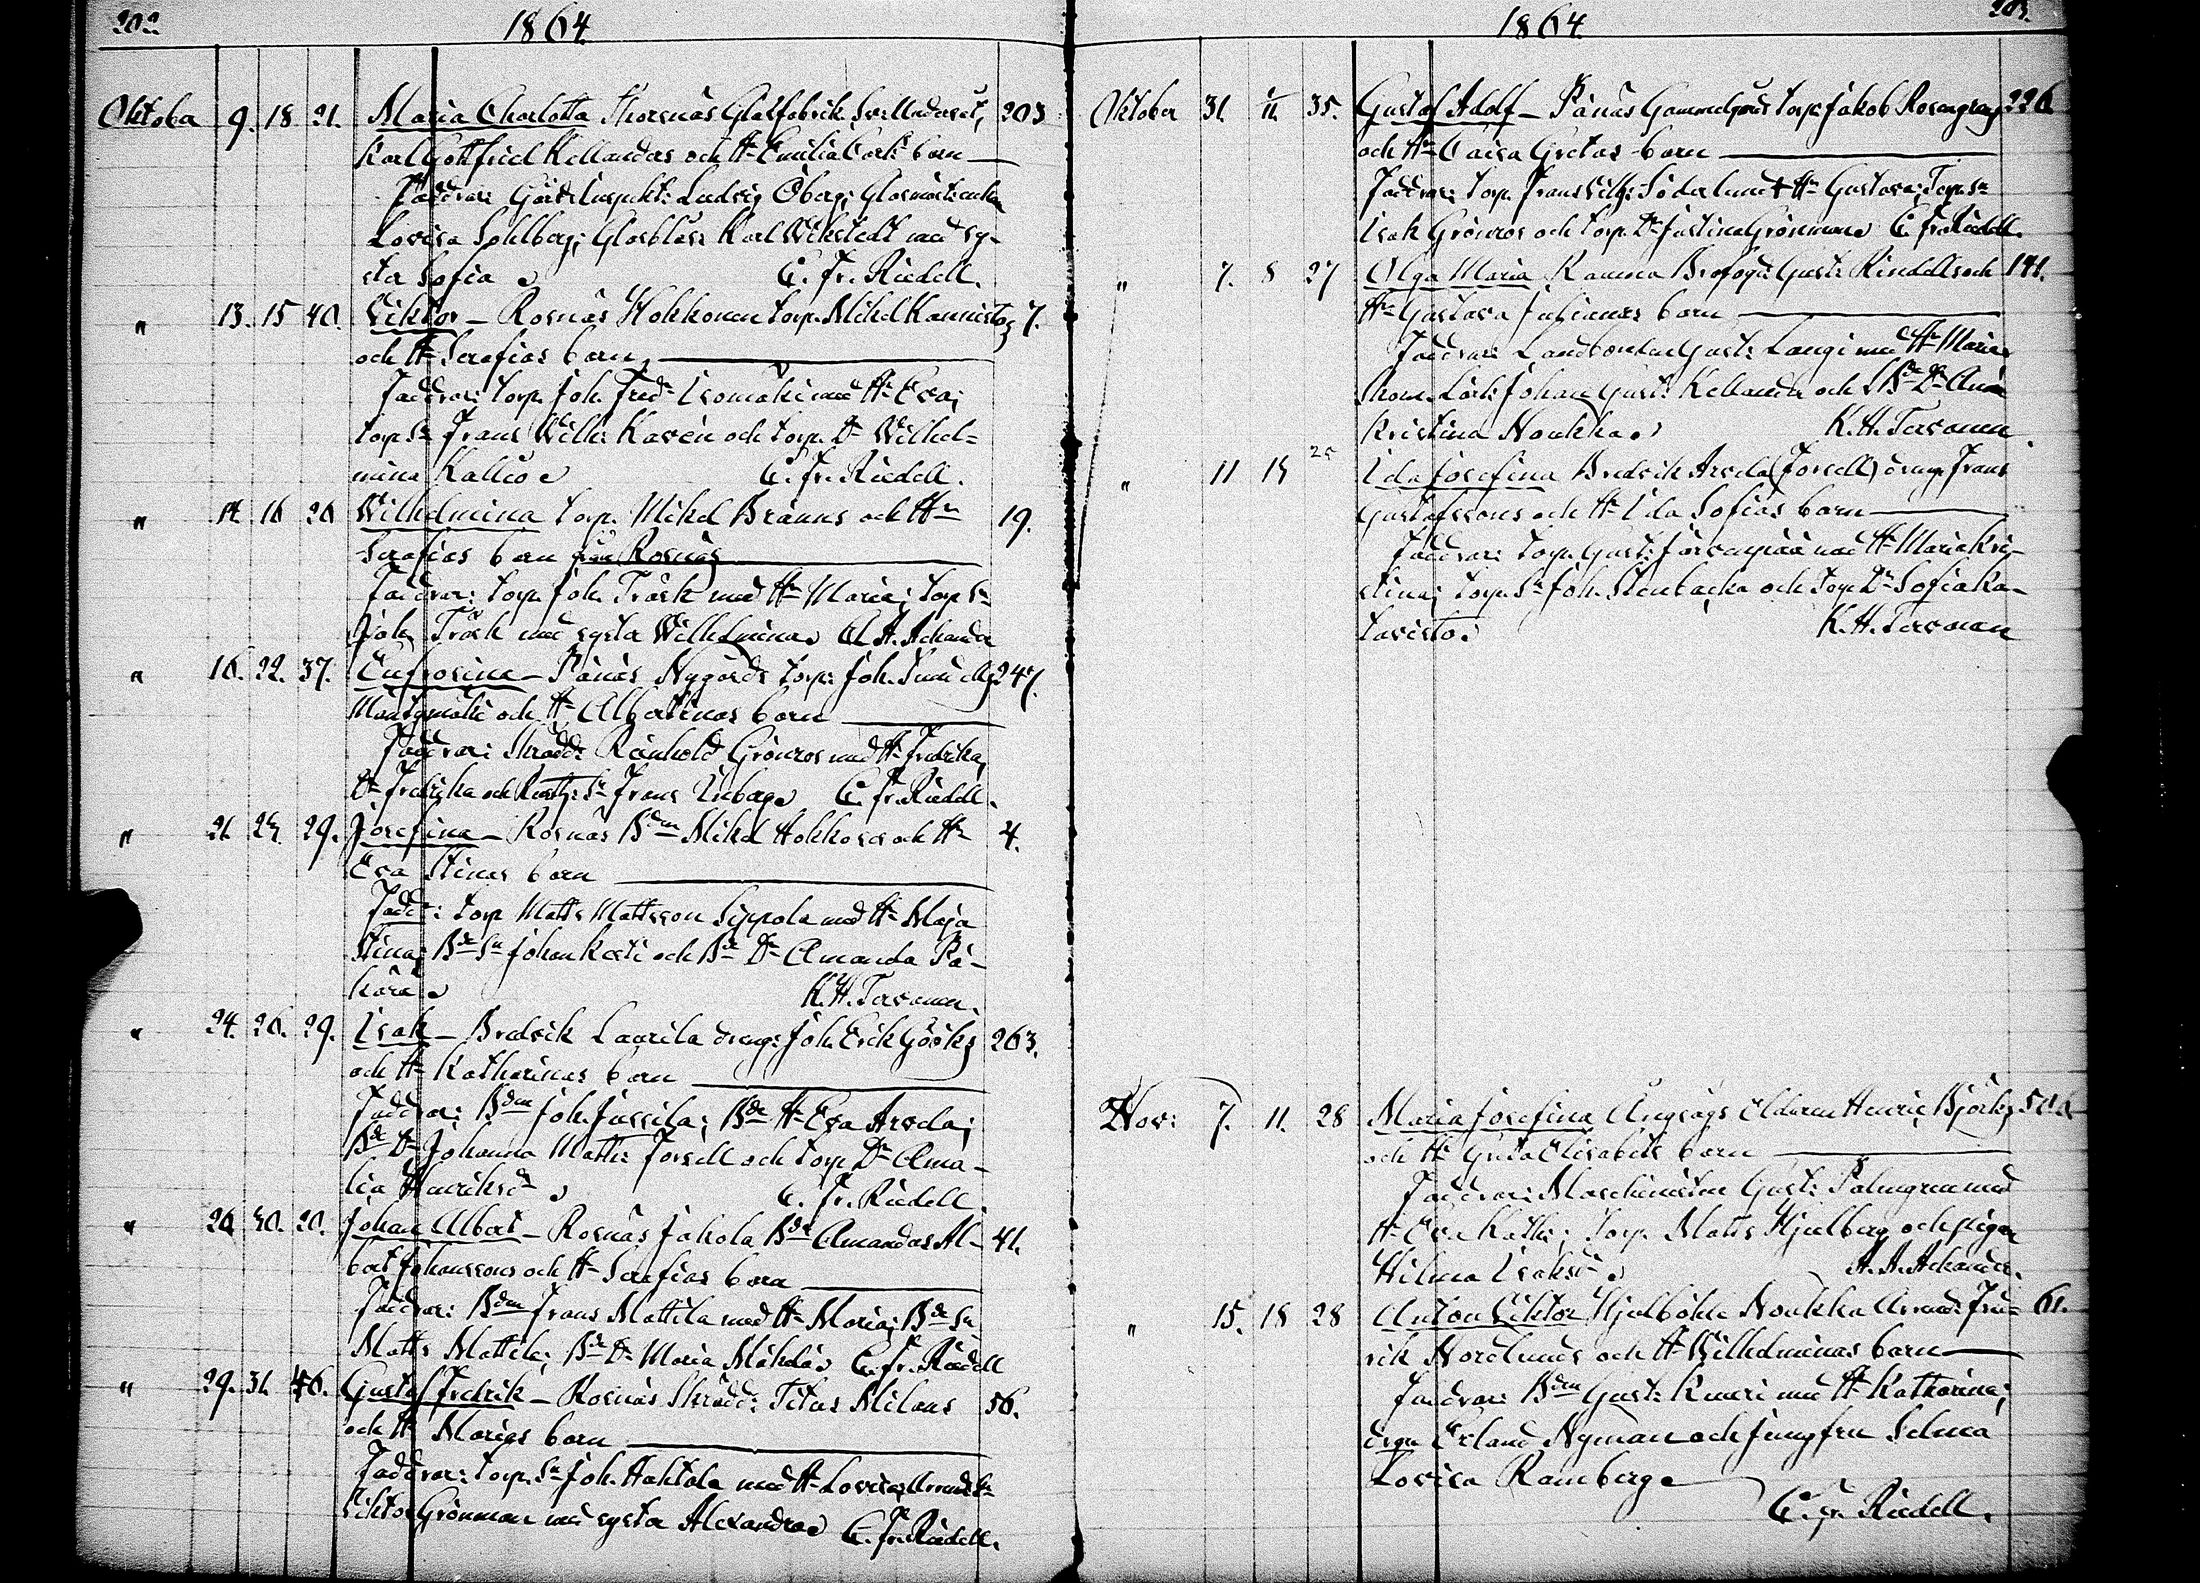 202.
1864.
Oktober 9. 18. 21. Maria Charlotta Thorsnäs Glasfabrik 203
Karl Gottfried Kellanders och Hn Emilia barn
Faddrar: Ludvig Öberg;
Lovisa Sohlberg; Glasblås: Karl Wikstedt med sy-
ster Sofia C. Fr. Riedell.
" 13. 15 40. Viktor – Rosnäs Hokkonen torp. Mikel Kannistos 7.
och Hn Serafias barn
Faddrar: torp. Joh. Fred: Isomäki med Hn Eva;
torp Sn Frans Wilh: Kavén och torp. Dr Wilhel=
mina Kallio C. Fr. Riedell.
" 14. 16 26 Wilhelmina torp. Mikel Bränns och Hn 19.
Serafias barn från Rosnäs
Faddrar: torp. Joh. Träsk med Hn Maria; torp Sn
Joh. Träsk med syster Wilhelmina A. A. Achander
" 16. 22. 37. Eufrosina – Pänäs Nygårds torp: Joh. 247.
Mäntymäki och Hn Albertinas barn
Faddrar: Skrädd: Reinhold Grönros med Hn Fredrika;
Dr Fredrika och Sn Frans C. Fr. Riedell.
" 21. 23. 29. Josefina – Rosnäs Bdm Mikel Hokkos och Hn 4.
Eva Stinas barn
Fadd: torp Matts Mattsson Sippola med Hn Maja
Stina; Bde Sn Johan Kosti och Bde Dr Amanda Pä-
härä K. H. Tervonen.
" 24. 26. 29. Isak – Bredvik Laurila dreng: Joh. Erik Gööks 263.
och Hn Katharinas barn
Faddrar: Bdm Joh. Jussila; Bde Hn Eva Arvela;
Bde Dr Johanna Matts: Forsell och torp Dr Ama-
lia Henriksd: C. Fr. Riedell
" 26 30. 20. Johan Albert – Rosnäs Jakola Bde Amandas Al- 41.
bert Johanssons och Hn Serafias barn
Faddrar: Bdm Frans Mattila med Hn Maria; Bde Sn
Matts Mattila; Bde Dr Maria Mäkelä C. Fr. Riedell
" 29. 31. 46. Gustaf Fredrik – Rosnäs Skrädd: Titus Milans 56.
och Hn Marias barn
Faddrar: torp. Sn Joh. Hahtola med Hn Lovisa;
Viktor Grönman med syster Alexandra C. Fr. Riedell.
1864.
203.
Oktober 31. 35. Gustaf Adolf – Pänäs torp: Jakob Rosengrens 226
och Hn Caisa Gretas barn
Faddrar: torp. Frans Wilh: Söderlund Hn Gustava; Torp. Sn
Isak Grönros och torp. Dr Justina Grönman C. Fr. Riedell.
" 7. 8 27 Olga Maria Gust: Rindells och 141.
Hn Gustava Julianas barn
Faddrar: Landbonden Gust: Laugi med Hn Maria
Johan Gust: Kellander och Bde Dr Anna
Kristina Noukka K. H. Tervonen.
" 11 14 25 Ida Josefina Bredvik Arvela (Forsell) dreng: Frans
Gustafssons och Hn Ida Sofias barn
Faddrar: torp. Gust: Järvenpää med Hn Maria Kri-
stina; torp. Sn Joh. Stenbacka och torp Dr Sofia Ka-
tavisto K. H. Tervonen
Nov: 7. 11. 28 Maria Josefina Ångsågs Henric Björks
och Hn Greta Elisabets barn
Faddrar: Maschinisten Gust: Palmgren med
Hn Eva Kath:; torp. Matts Hjulberg och pigan
Hilma Isaksd: A. A. Achander.
" 15. 18 28 Anton Viktor Hjulböhle Noukka Fred- 61.
rik Nordlunds och Hn Wilhelminas barn
Faddrar: Bdm Gust: Kuuri med Hn Katharina;
dreng Erland Nyman och jungfru Selma
Lovisa Ramberg
C. Fr. Riedell.